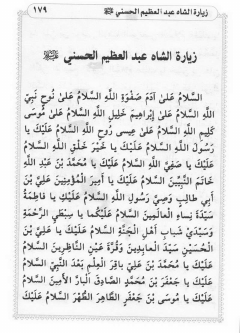 زيارة الشاه عبد العظيم الحسني ١٧٩
زيارة الشاه عبد العظيم الحسني
السَّلامُ عَلىٰ آدَمَ صَفْوَةِ اللَّهِ السَّلامُ عَلىٰ نُوحٍ نَبِيِّ
اللَّهِ السَّلامُ عَلىٰ إِبْراهِيمَ خَلِيلِ اللَّهِ السَّلامُ عَلىٰ مُوسىٰ
كَلِيمِ اللَّهِ السَّلامُ عَلىٰ عِيسىٰ رُوحِ اللَّهِ السَّلامُ عَلَيْكَ يا
رَسُولَ اللَّهِ السَّلامُ عَلَيْكَ يا خَيْرَ خَلْقِ اللَّهِ السَّلامُ
عَلَيْكَ يا صَفِيَّ اللَّهِ السَّلامُ عَلَيْكَ يا مُحَمَّدَ بْنَ عَبْدِ اللَّهِ
خاتَمَ النَّبِيِّينَ السَّلامُ عَلَيْكَ يا أَمِيرَ الْمُؤْمِنِينَ عَلِيَّ بْنَ
أَبِي طالِبٍ وَصِيَّ رَسُولِ اللَّهِ السَّلامُ عَلَيْكِ يا فاطِمَةُ
سَيِّدَةَ نِساءِ الْعالَمِينَ السَّلامُ عَلَيْكُما يا سِبْطَيِ الرَّحْمَةِ
وَسَيِّدَيْ شَبابِ أَهْلِ الْجَنَّةِ السَّلامُ عَلَيْكَ يا عَلِيَّ بْنَ
الْحُسَيْنِ سَيِّدَ الْعابِدِينَ وَقُرَّةَ عَيْنِ النَّاظِرِينَ السَّلامُ
عَلَيْكَ يا مُحَمَّدَ بْنَ عَلِيٍّ باقِرَ الْعِلْمِ بَعْدَ النَّبِيِّ السَّلامُ
عَلَيْكَ يا جَعْفَرَ بْنَ مُحَمَّدٍ الصَّادِقَ الْبارَّ الْأَمِينَ السَّلامُ
عَلَيْكَ يا مُوسَى بْنَ جَعْفَرٍ الطَّاهِرَ الطُّهْرَ السَّلامُ عَلَيْكَ